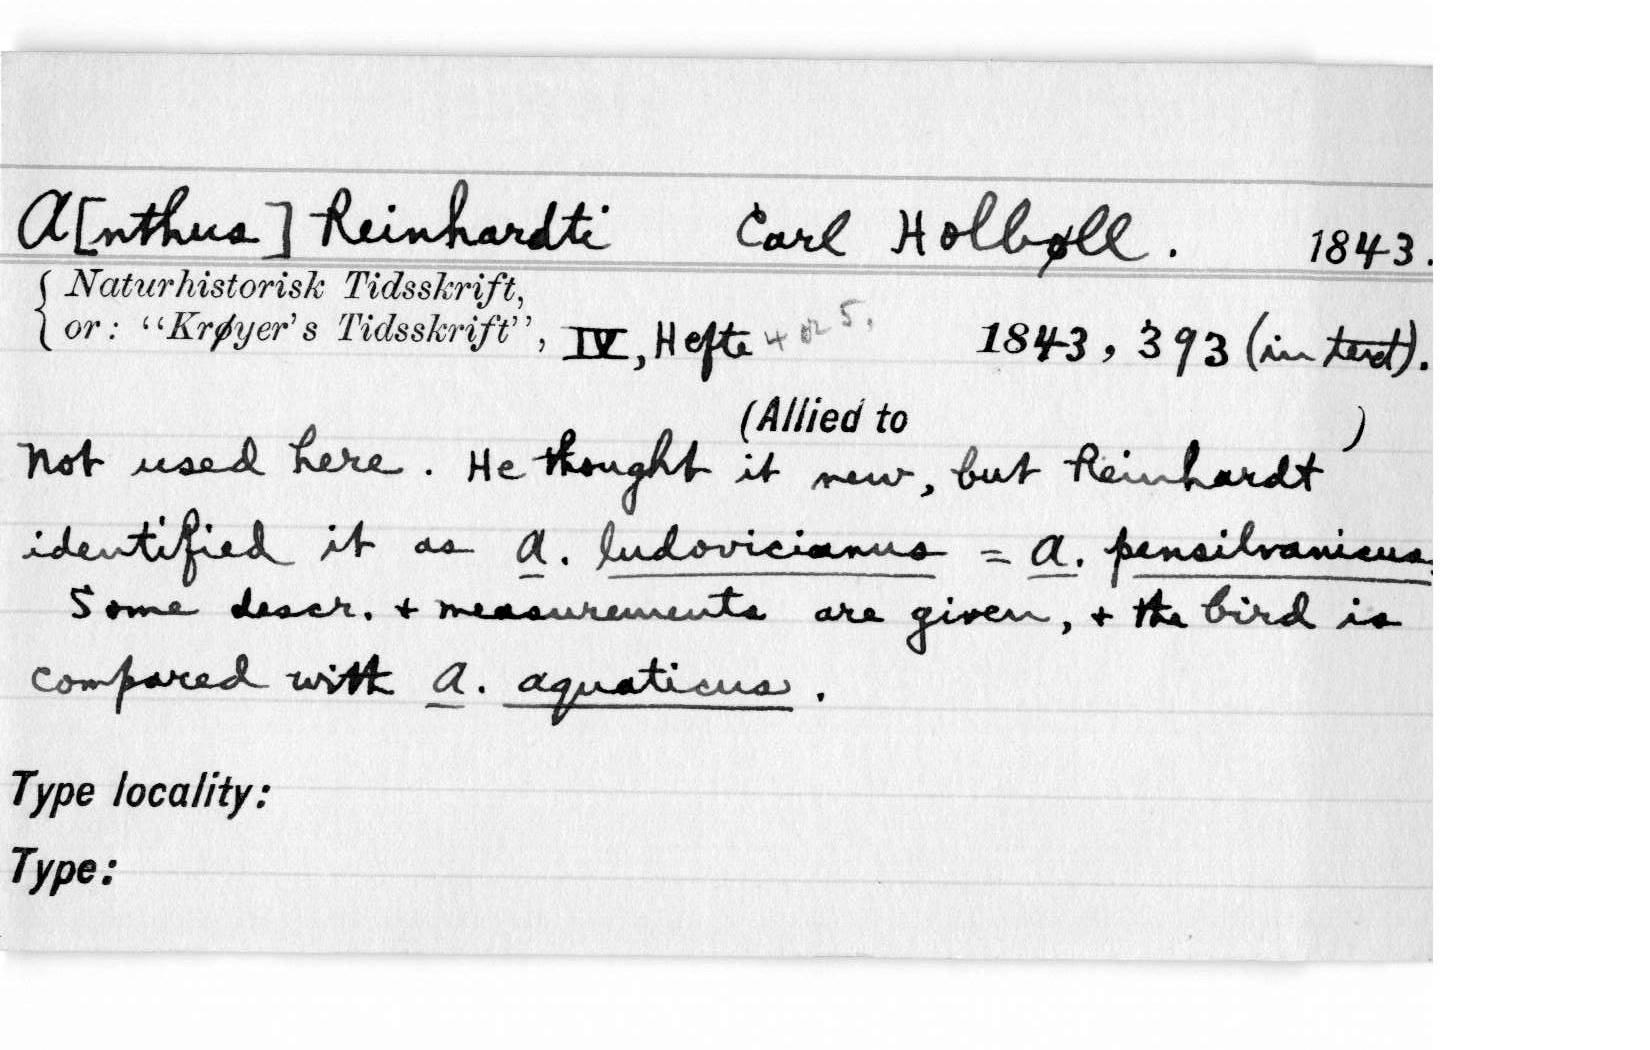 A[nthus] Reinhardti Carl Holbøll. 1843.
{ Naturhistorisk Tidsskrift,
or: "Krøyer's Tidsskrift", IV, Hefte 4 or 5. 1843, 393 (in text).
(Allied to )
Not used here. He thought it new, but Reinhardt
identified it as A. ludovicianus = A. pensilvanicus.
Some descr. + measurements are given, + the bird is
compared with A. aquaticus.
Type locality:
Type: